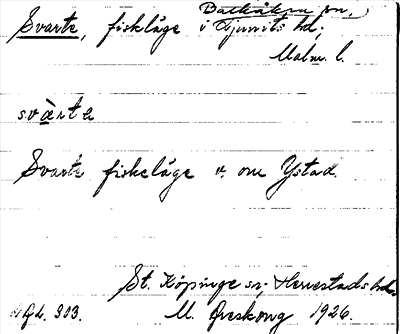 Balkåkra sn,
Svarte, fiskläge i Ljunits hd.
Malm. l.
svàrta
Svarte fiskeläge v. om Ystad.
St. Köpinge sn; Herrestads hd.
Gd. 303. M. 1926.